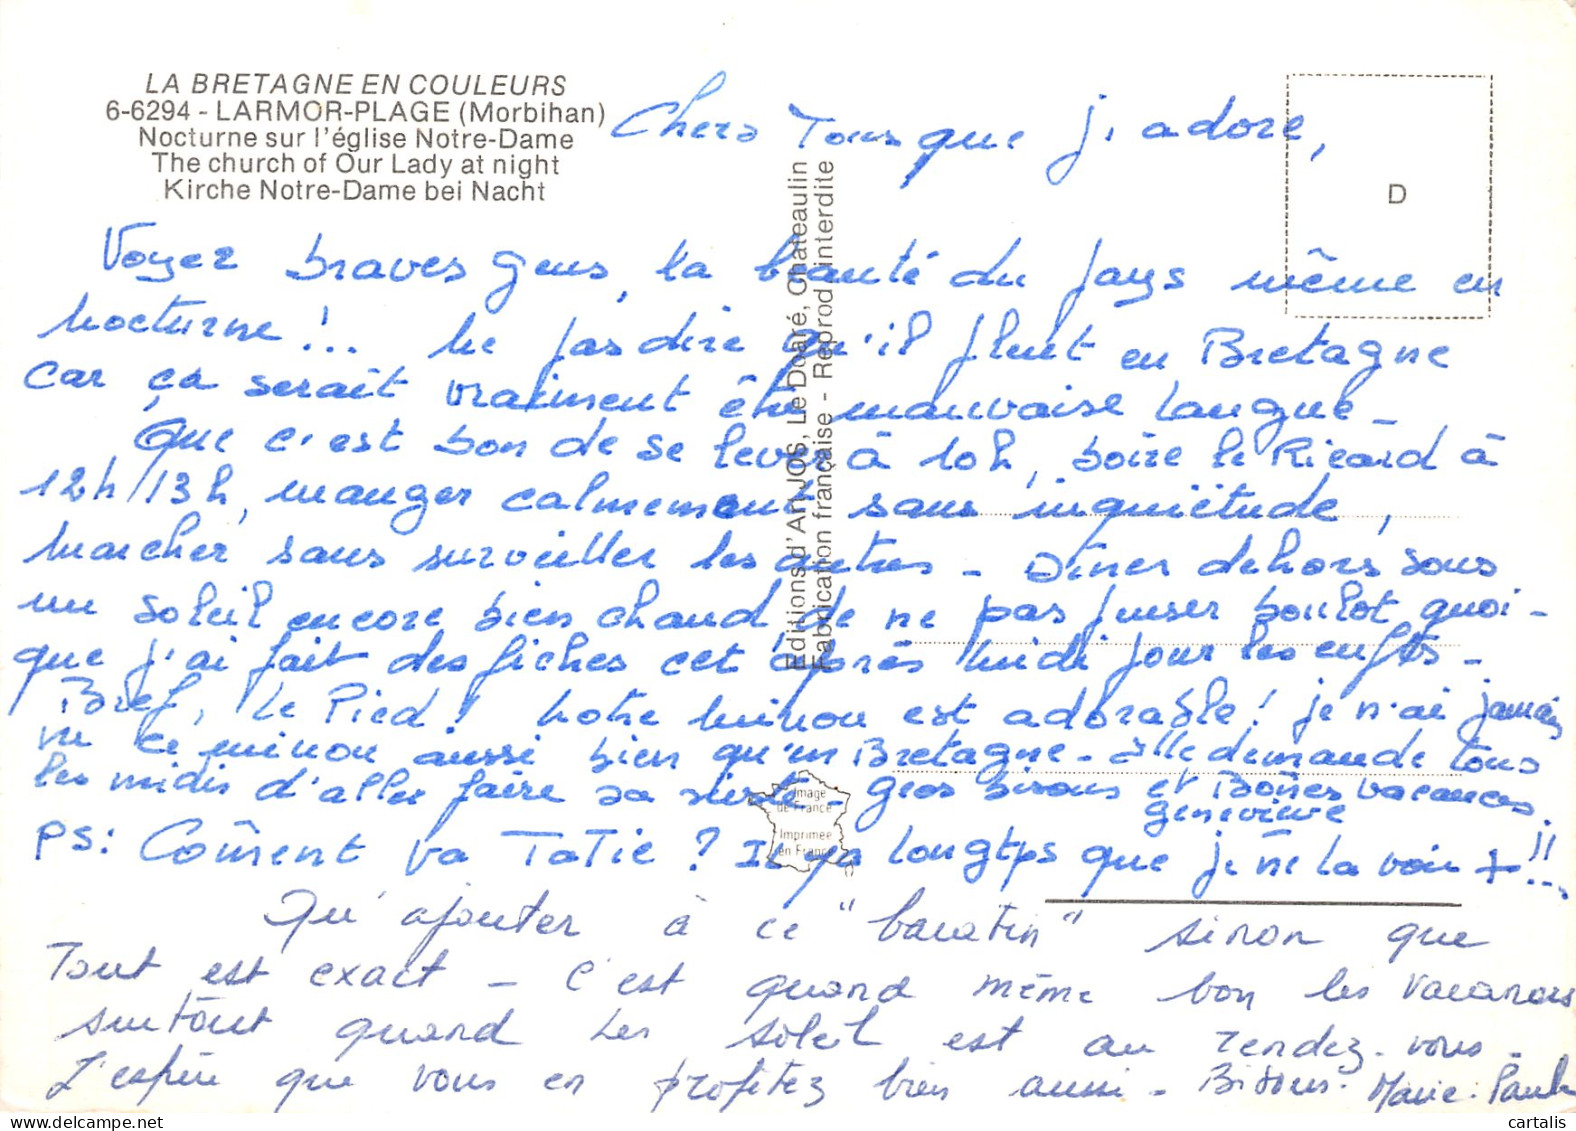 LA BRETAGNE EN COULEURS
6-6294 - LARMOR-PLAGE (Morbihan)
Nocturne sur l'église Notre-Dame
The church of Our Lady at night
Kirche Notre-Dame bei Nacht
D
Editions d'Art JOS, Le Doaré, Chateaulin
Fabrication française - Reprod interdite
Chers Tous que j'adore,
Voyez braves gens, la beauté du pays même en
nocturne !.. Ne pas dire qu'il pleut en Bretagne
car ça serait vraiment être mauvaise langue -
Que c'est bon de se lever à 10h, boire le Ricard à
12h/13h, manger calmement sans inquiétude,
marcher sans surveiller les autres - Diner dehors sous
un soleil encore bien chaud, de ne pas penser boulot quoi-
que j'ai fait des fiches cet après midi pour les enfts -
Bref, le Pied ! Notre minou est adorable ! je n'ai jamais
vu ce minou aussi bien qu'en Bretagne - elle demande tous
les midis d'aller faire sa sieste - Gros bisous et Bonnes vacances.
Geneviève
PS: Comment va TaTie ? Il y a longtps que je ne la vois + !!...
Image
de France
Imprimée
en France
Qu'ajouter à ce "baratin" sinon que
Tout est exact - C'est quand même bon les vacances
surtout quand le soleil est au rendez-vous -
J'espère que vous en profitez bien aussi - Bisous. Marie-Paule
cartalis